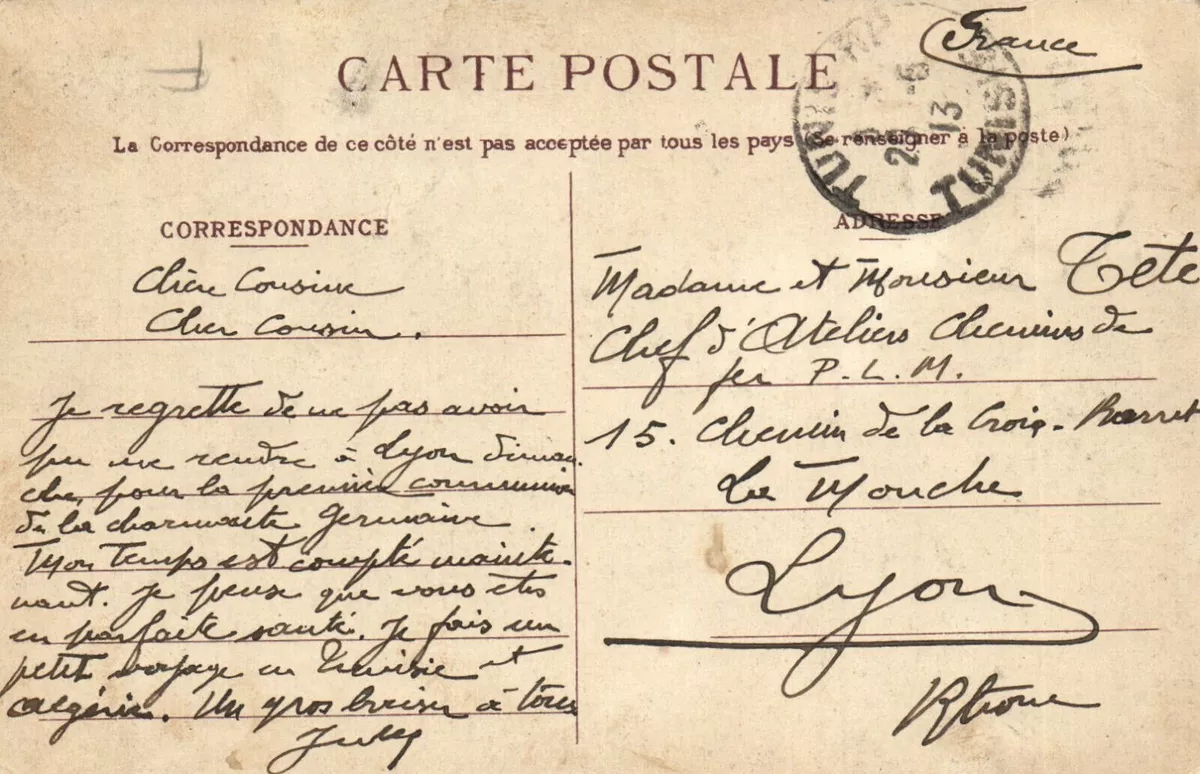 France
CARTE POSTALE
La Correspondance de ce côté n'est pas acceptée par tous les pays (Se renseigner à la poste)
TUNIS TUNISIE
13
CORRESPONDANCE
Chère Cousine
Cher Cousin.
Je regrette de ne pas avoir
pu me rendre à Lyon diman
che, pour la première communion
de la charmante Germaine.
Mon temps est compté mainte-
nant. Je pense que vous êtes
en parfaite santé. Je fais un
petit voyage en Tunisie et
Algérie. Un gros baiser à tous
ADRESSE
Madame et Monsieur Tète
Chef d'Ateliers Chemins de
fer P.L.M.
15. Chemin de la Croix-Barret
La Mouche
Lyon
Rhône